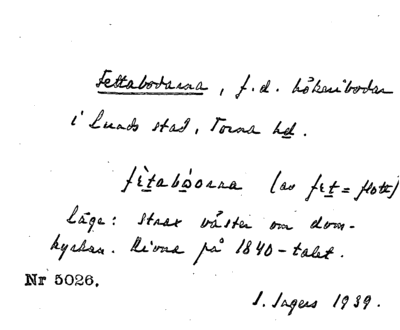 Fettabodarna, f.d. hökeribodar
i Lunds stad, Torna hd.
fètabòorna (av fet = flott)
Läge: strax väster om dom-
kyrkan. Rivna på 1840-talet.
Nr 5026.
I. Ingers 1939.